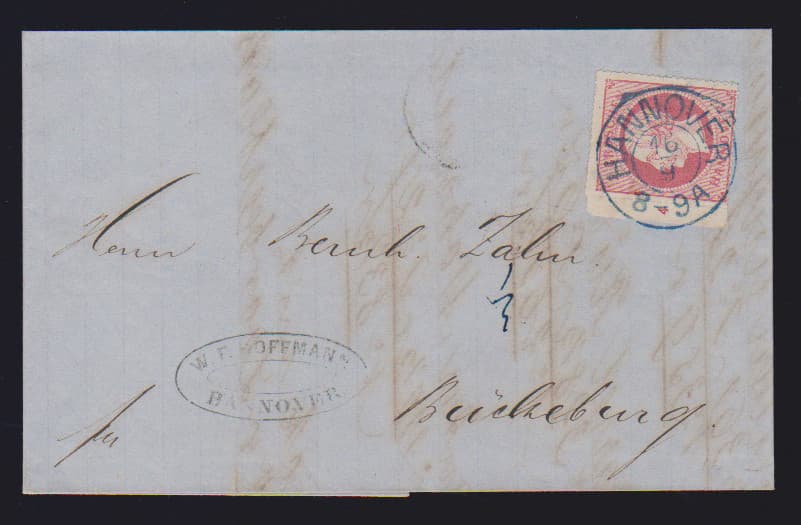 HANNOVER
16
9
8-9A
4
Herrn Bernh. Zahn.
W. F. HOFFMANN
HANNOVER
fr
Bückeburg.